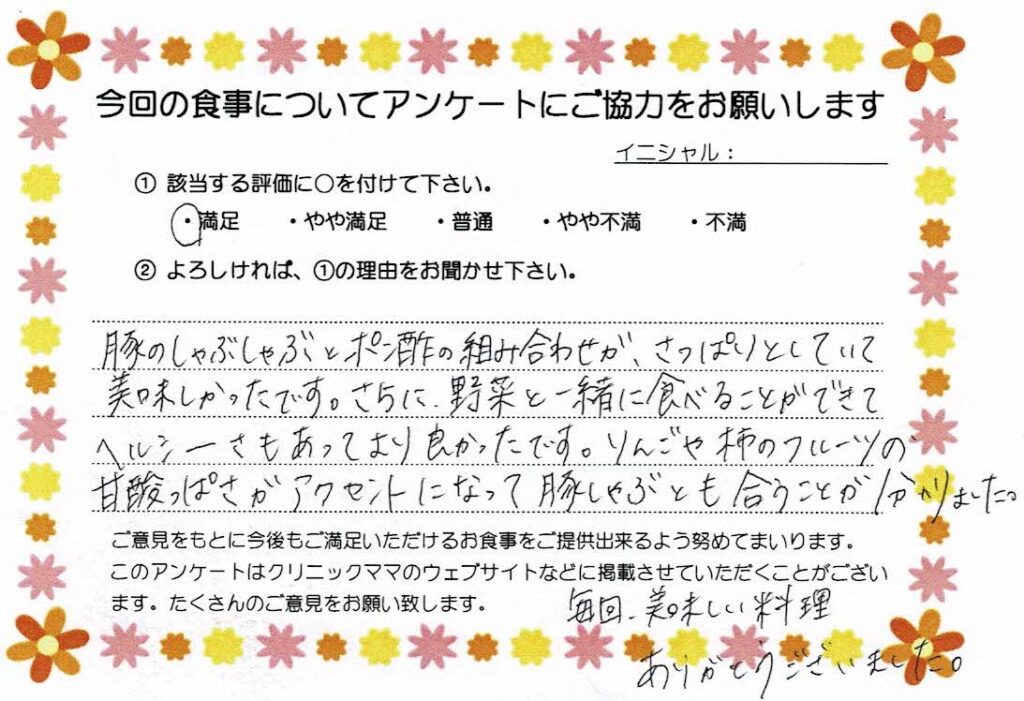 今回の食事についてアンケートにご協力をお願いします
イニシャル：
① 該当する評価に○を付けて下さい。
・満足 ・やや満足 ・普通 ・やや不満 ・不満
② よろしければ、①の理由をお聞かせ下さい。
豚のしゃぶしゃぶとポン酢の組み合わせが、さっぱりとしていて
美味しかったです。さらに、野菜と一緒に食べることができて
ヘルシーさもあってより良かったです。りんごや柿のフルーツの
甘酸っぱさがアクセントになって豚しゃぶとも合うことが分かりました。
ご意見をもとに今後もご満足いただけるお食事をご提供出来るよう努めてまいります。
このアンケートはクリニックママのウェブサイトなどに掲載させていただくことがござい
ます。たくさんのご意見をお願い致します。
毎回、美味しい料理
ありがとうございました。